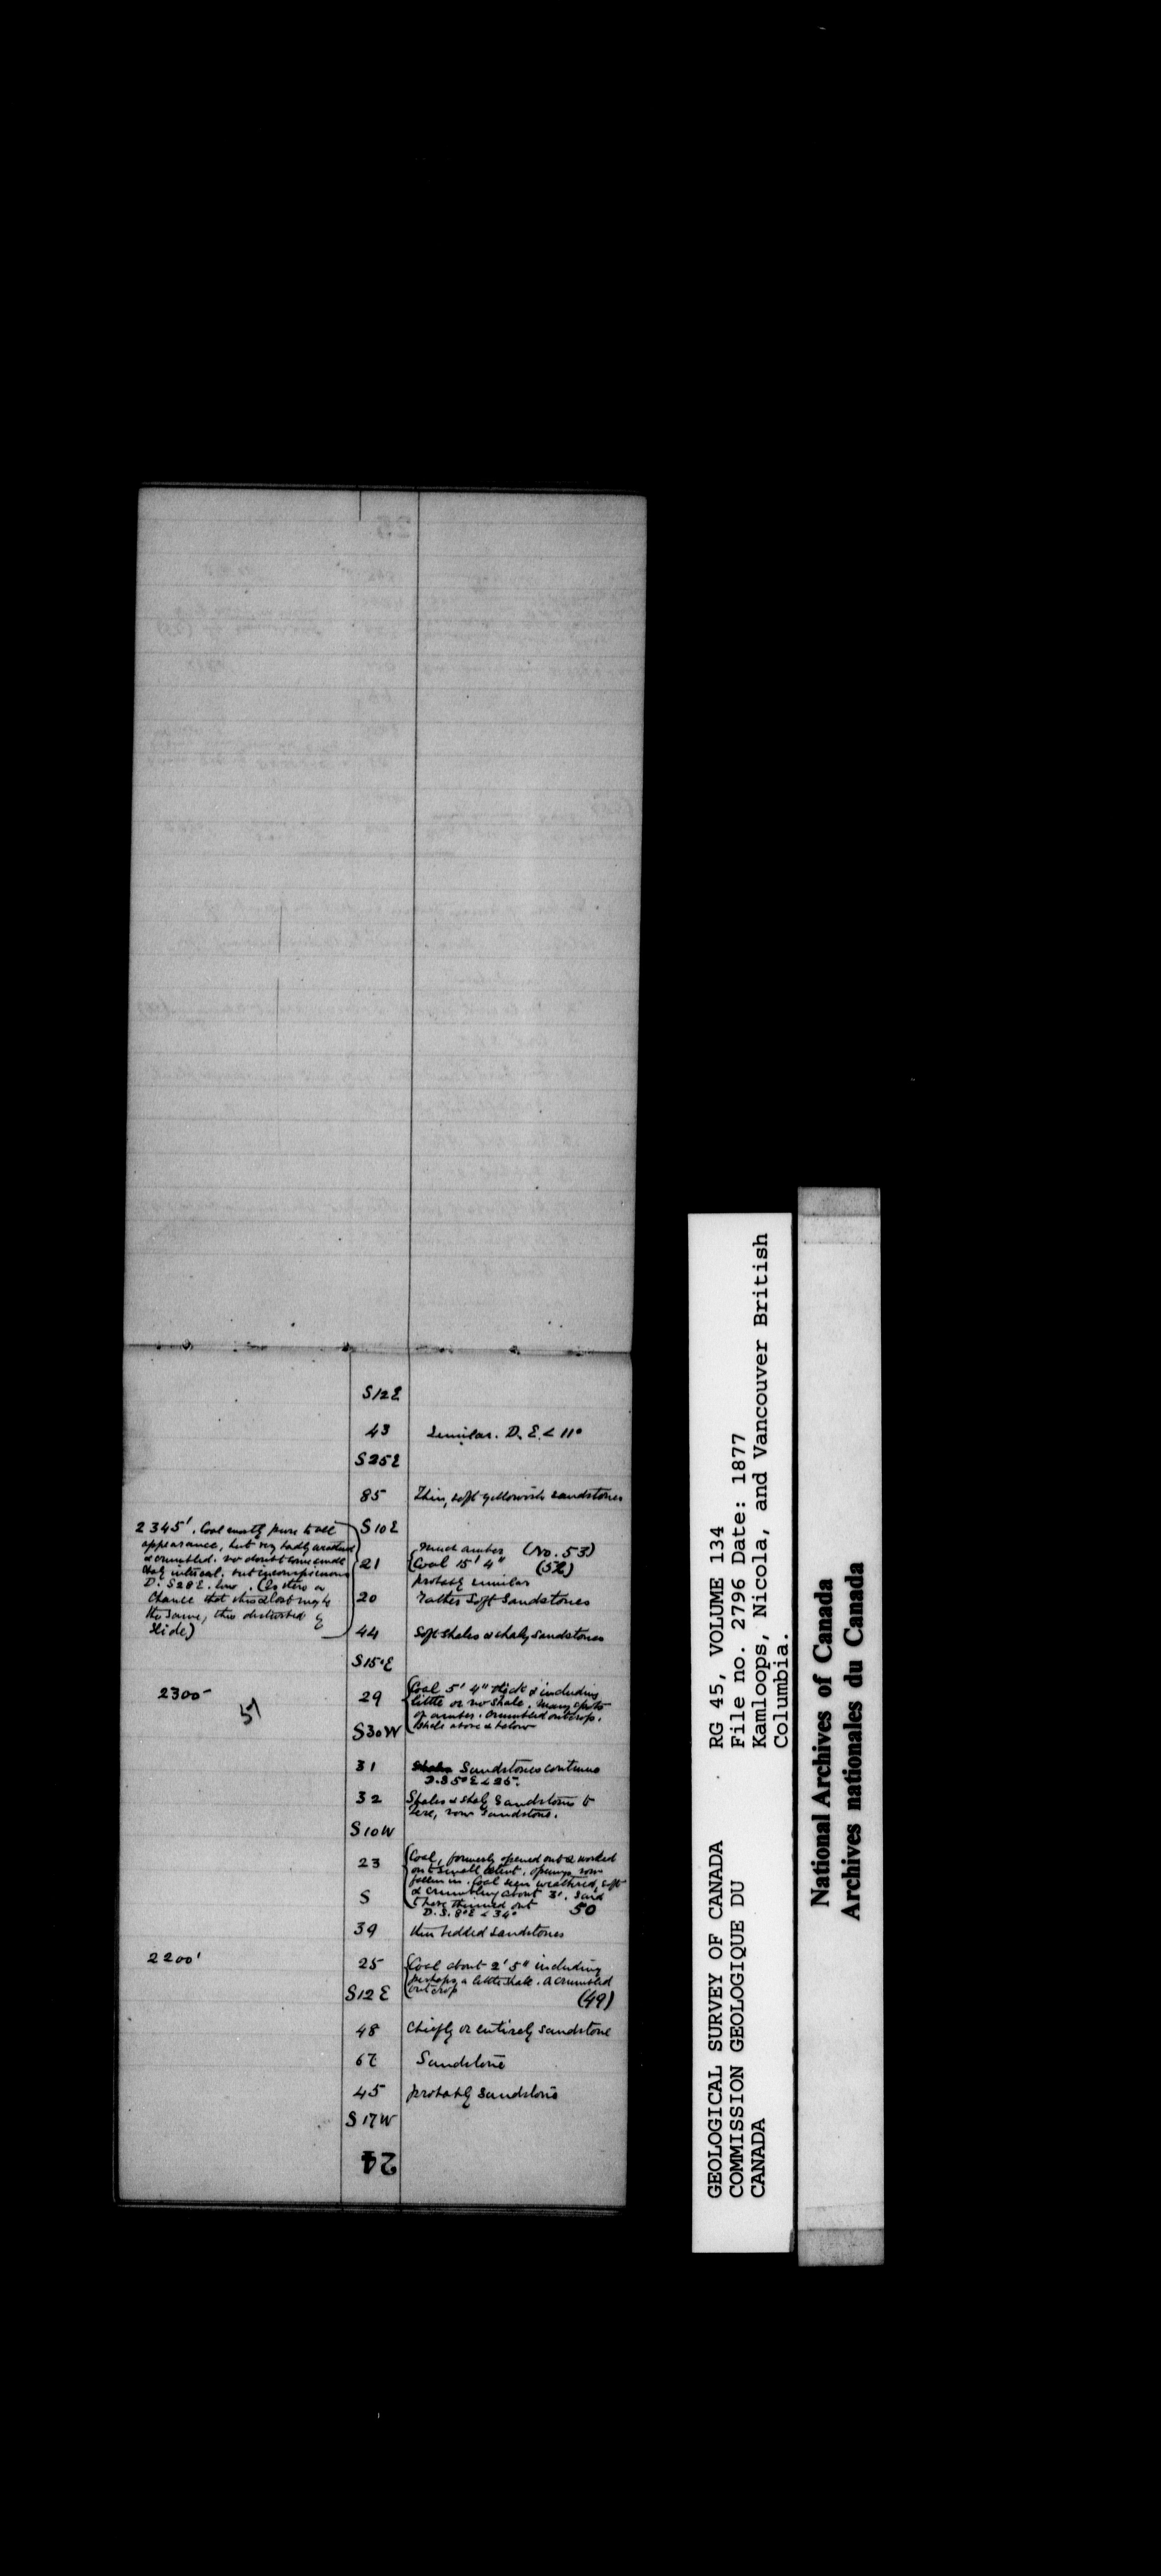 S12E
43 Similar. D. E. < 11°
S25E
85 Thin, soft yellowish sandstones
S10E
2345'. Coal mostly pure to all
appearance, but very badly weathered
& crumbled. no doubt some small
shaly intercal. but inconspicuous
D. S28E. low. (Is there a
chance that this & last may be
the same, thus disturbed by
slide)
much amber (No. 53)
21 Coal 15' 4" (52)
probably similar
20 rather soft sandstones
44 Soft shales & shaly sandstones
S15°E
2300 51
29 Coal 5' 4" thick & including
little or no shale. Many spots
of amber. Crumbled outcrop.
Shale above & below
S30W
31 Sandstones continue
D. S 5° E < 25°.
32 Shales & shaly Sandstones to
here, now Sandstone.
S10W
23 Coal, formerly opened out & worked
on small extent. openings now
fallen in. Coal seen weathered, soft
& crumbling about 3'. Said
S to have thinned out 50
D. S. 8° E < 34°
39 thin bedded sandstones
2200'
25 Coal about 2' 5" including
perhaps a little shale. A crumbled
outcrop
S12E (49)
48 Chiefly or entirely sandstone
67 Sandstone
45 probably sandstone
S17W
24
GEOLOGICAL SURVEY OF CANADA RG 45, VOLUME 134
COMMISSION GEOLOGIQUE DU File no. 2796 Date: 1877
CANADA Kamloops, Nicola, and Vancouver British
Columbia.
National Archives of Canada
Archives nationales du Canada